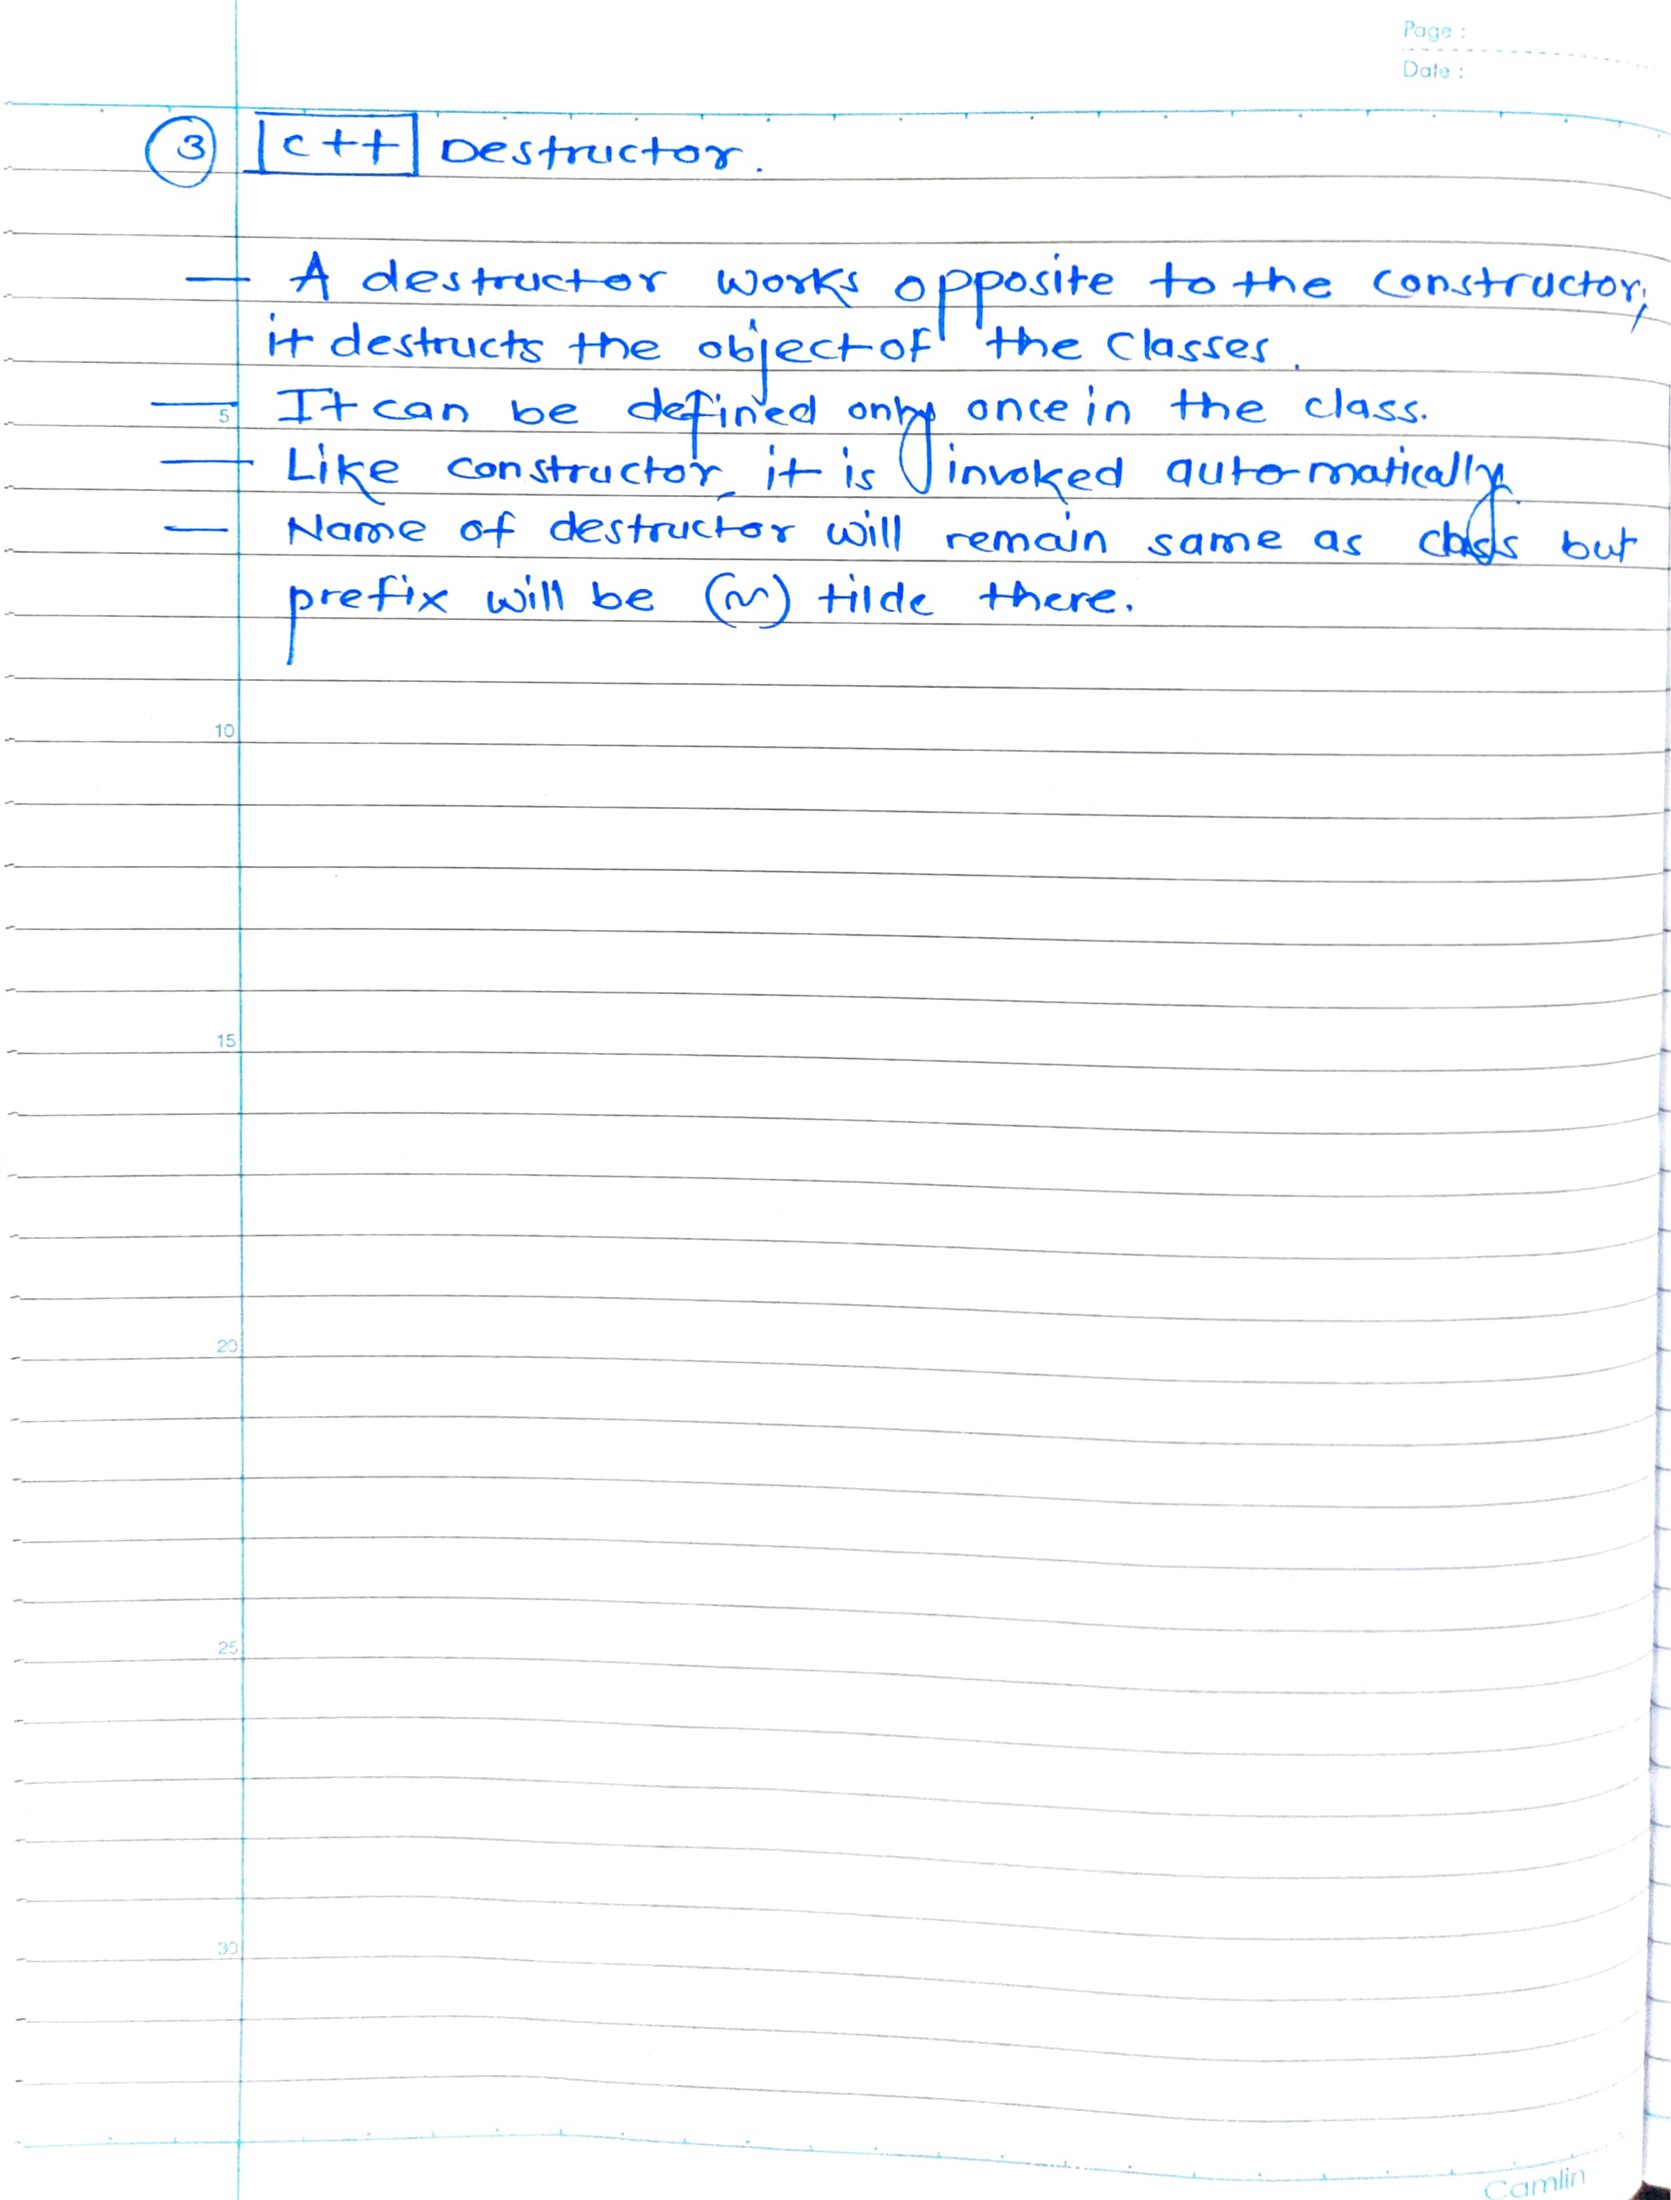 Page :
Date :
3 C++ Destructor.
— A destructor works opposite to the constructor,
it destructs the object of the classes.
5 — It can be defined only once in the class.
— Like constructor, it is invoked automatically.
— Name of destructor will remain same as class but
prefix will be (~) tilde there.
10
15
20
25
30
Camlin